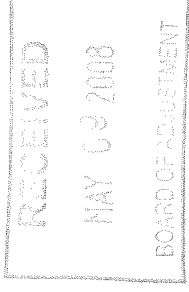 RECEIVED
MAY 09 2008
BOARD OF ADJUSTMENT